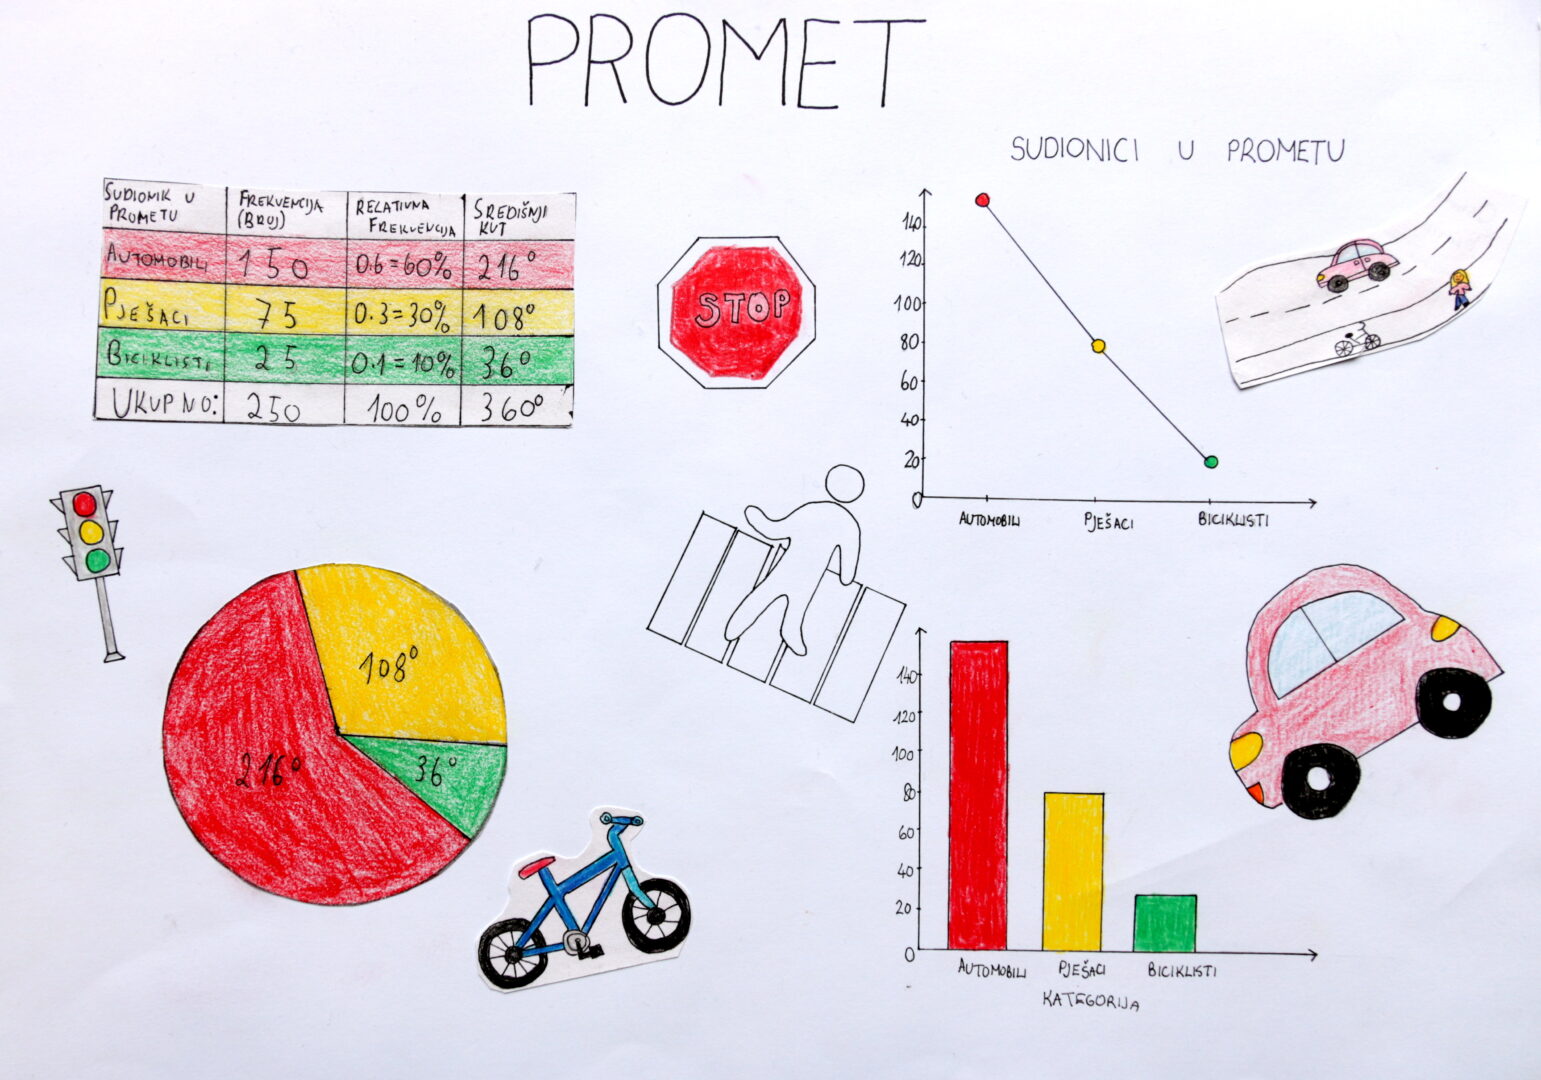 PROMET
SUDIONICI U PROMETU
SUDIONIK U PROMETU
FREKVENCIJA (BROJ)
RELATIVNA FREKVENCIJA
SREDIŠNJI KUT
AUTOMOBILI 150 0.6=60% 216°
PJEŠACI 75 0.3=30% 108°
BICIKLISTI 25 0.1=10% 36°
UKUPNO: 250 100% 360°
STOP
140
120
100
80
60
40
20
0
AUTOMOBILI PJEŠACI BICIKLISTI
108°
216°
36°
140
120
100
80
60
40
20
0
AUTOMOBILI PJEŠACI BICIKLISTI
KATEGORIJA